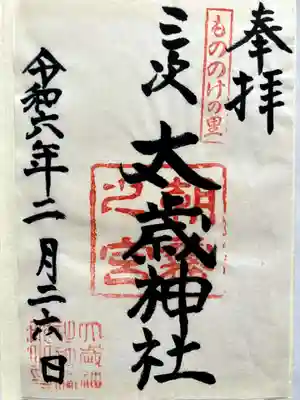 奉拝
もののけの里
三次
太歳神社
朝霧
之宮
令和六年二月二六日